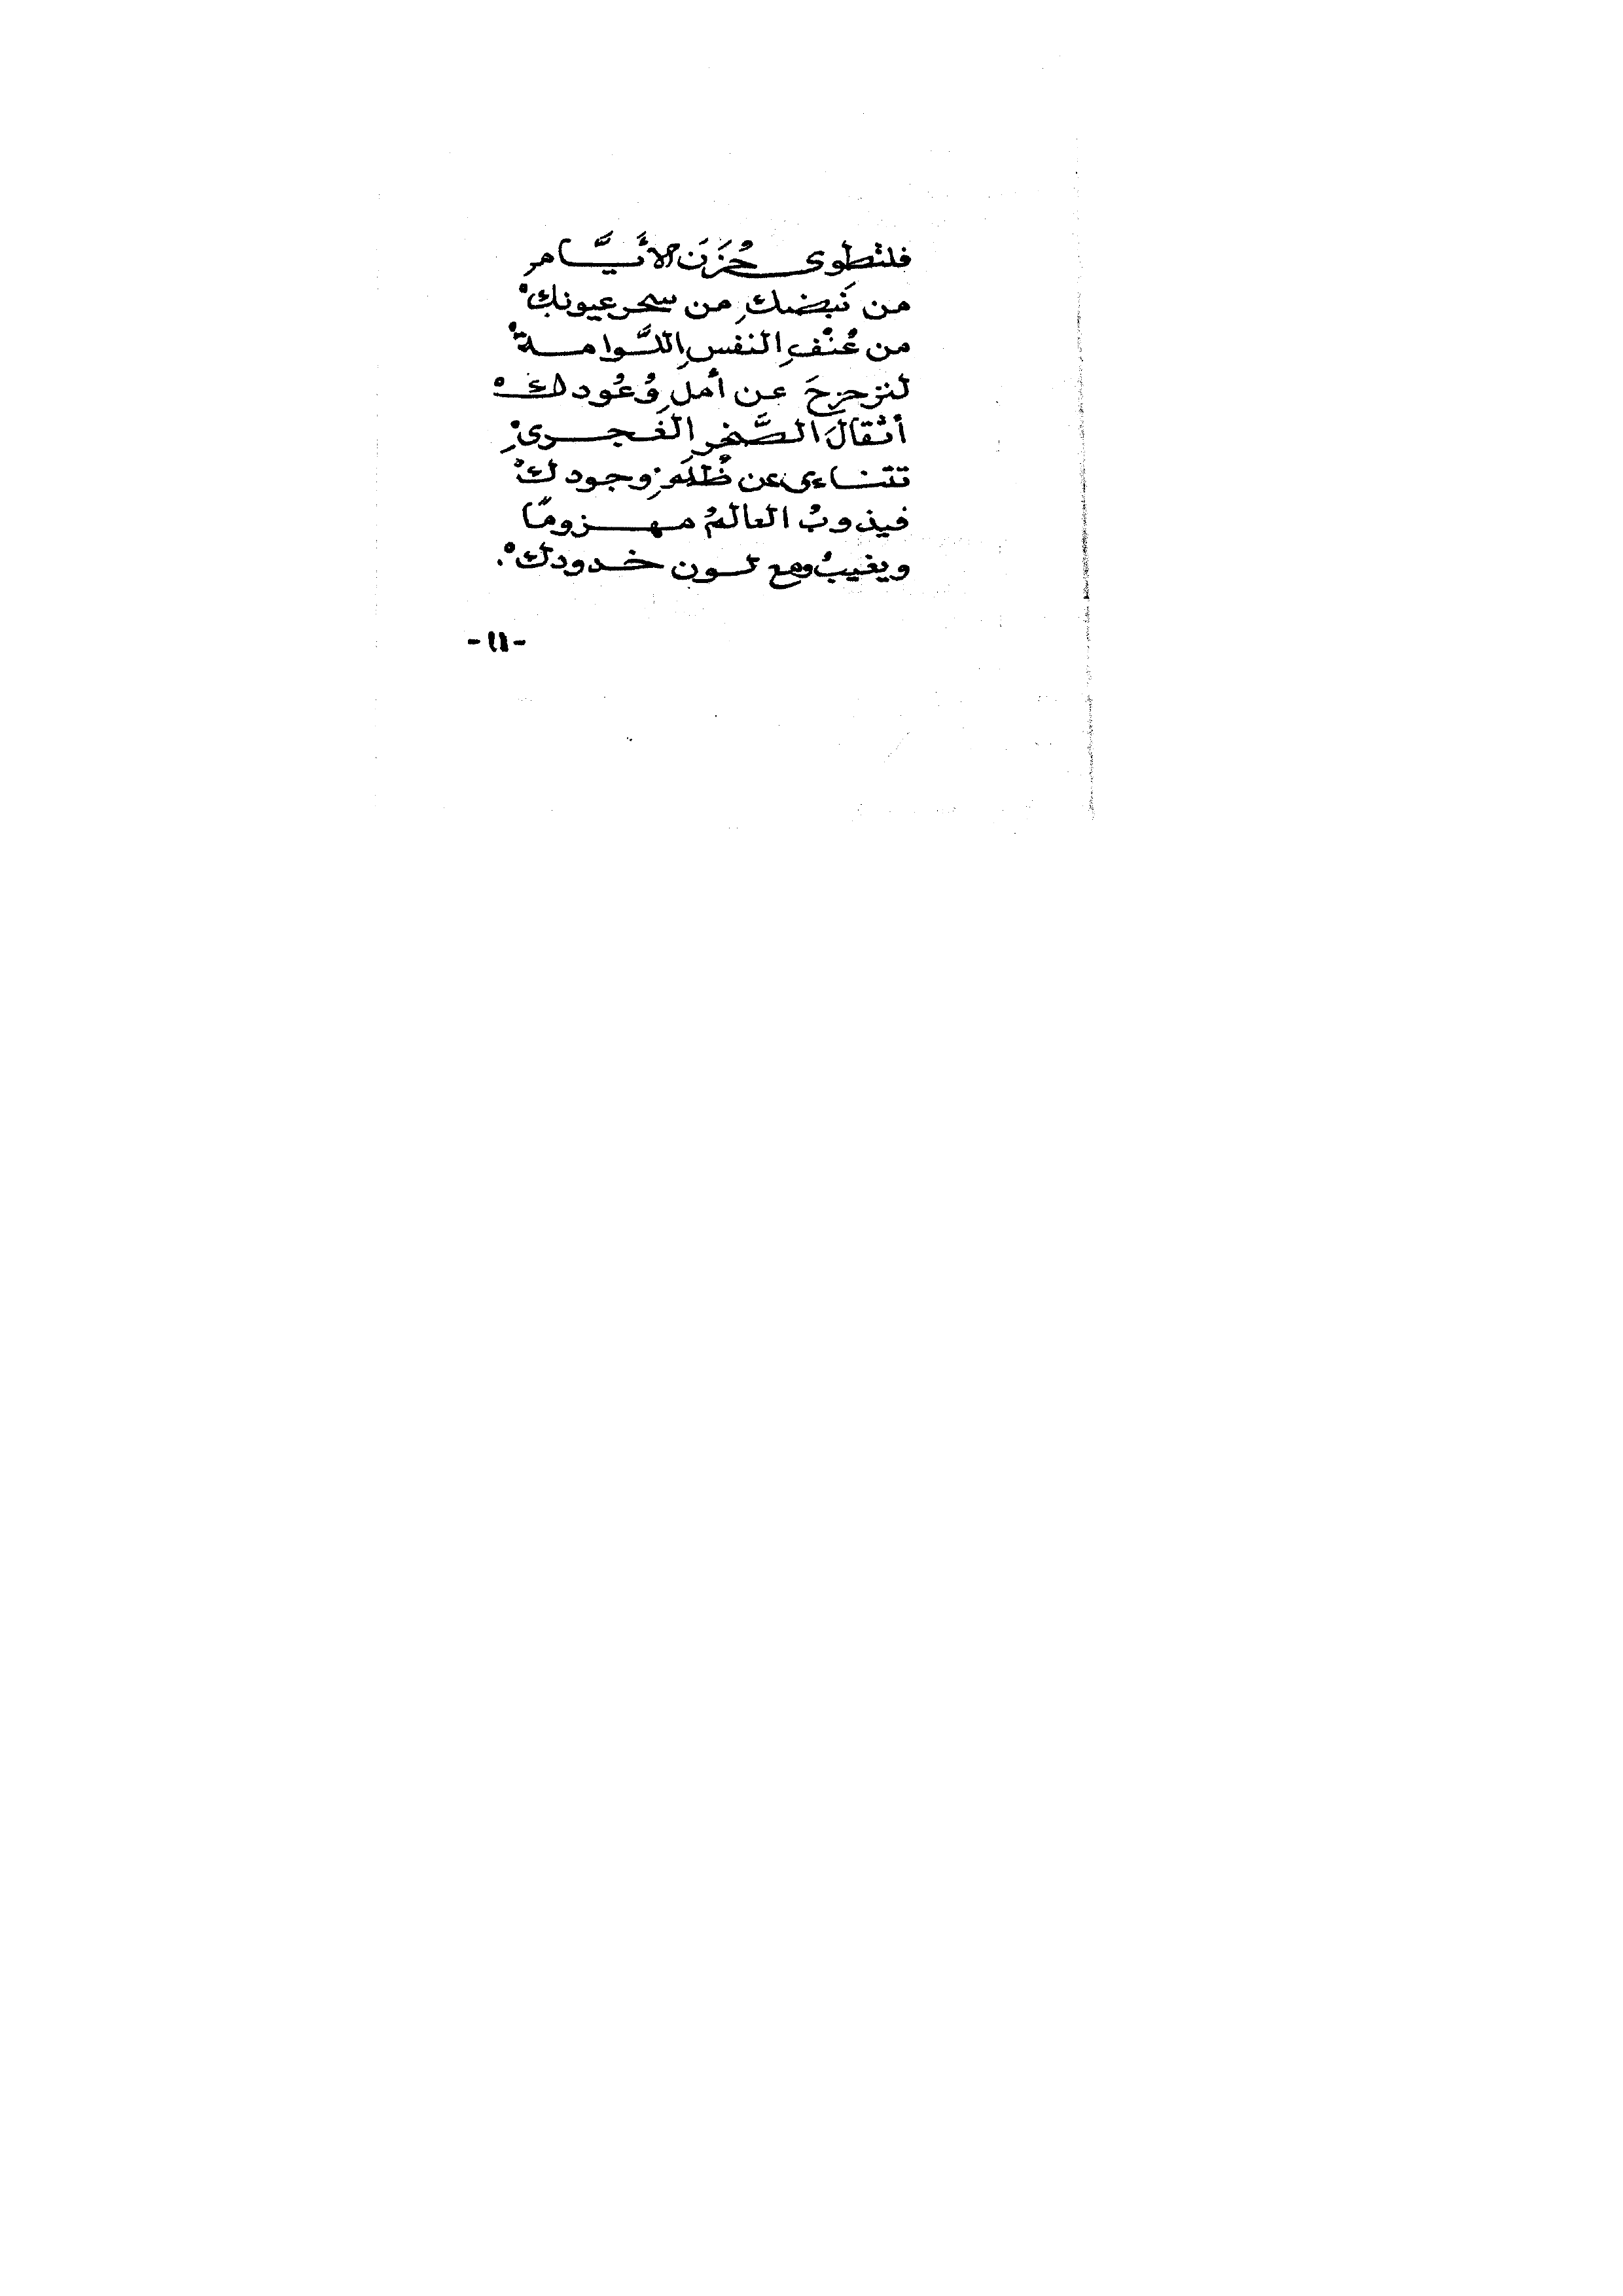 فلتطوى حُزَنَ الأيَّام
من نَبضكِ من سحر عيونكْ
من عُنْفِ النفسِ اللَّوامةْ
لنزحزحَ عن أملِ وُعُودكْ
أثقالَ الصَّخرِ الغَجرىْ
تتناءى عن ظُلَمِ وجودكْ
فيذوبُ العالمُ مهزومًا
ويغيبُ ومع لون خدودكْ.
-١١-